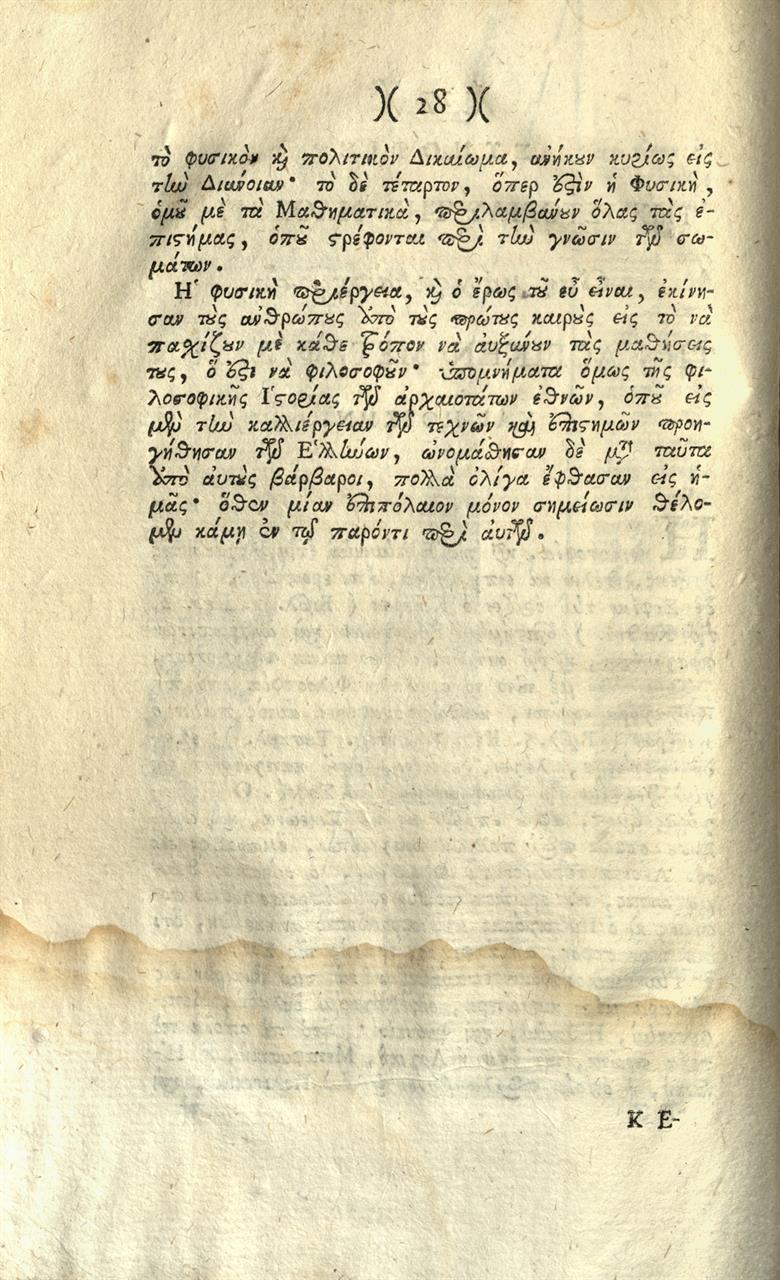 )( 28 )(
τὸ φυσικὸν ϗ̀ πολιτικὸν Δικαίωμα, ἀνήκȣν κυρίως εἰς
τὴν Διάνοιαν· τὸ δὲ τέταρτον, ὅπερ ἐςὶν ἡ Φυσικὴ,
ὁμȣ͂ μὲ τὰ Μαθηματικὰ, περιλαμβάνȣν ὅλας τὰς ἐ-
πιςήμας, ὁπȣ͂ ςρέφονται περὶ τὴν γνῶσιν τῶν σω-
μάτων.
Ἡ φυσικὴ περιέργεια, ϗ̀ ὁ ἔρως τȣ͂ εὖ εἶναι, ἐκίνη-
σαν τȣ̀ς ἀνθρώπȣς ἀπὸ τȣ̀ς πρώτȣς καιρȣ̀ς εἰς τὸ νὰ
παχίζȣν μὲ κάθε τρόπον νὰ ἀυξάνȣν τὰς μαθήσεις
τȣς, ὅ ἐςι νὰ φιλοσοφȣ͂ν· ὑπομνήματα ὅμως τῆς φι-
λοσοφικῆς Ἱςορίας τῶν ἀρχαιοτάτων ἐθνῶν, ὁπȣ͂ εἰς
μὲν τὴν καλλιέργειαν τῶν τεχνῶν καὶ ἐπιςημῶν προη-
γήθησαν τῶν Ἑλλήνων, ὠνομάθησαν δὲ μετὰ ταῦτα
ἀπὸ αὐτȣ̀ς βάρβαροι, πολλὰ ὀλίγα ἔφθασαν εἰς ἡ-
μᾶς· ὅθεν μίαν ἐπιπόλαιον μόνον σημείωσιν θέλο-
μεν κάμῃ ἐν τῷ παρόντι περὶ ἀυτῶν.
Κ Ε-